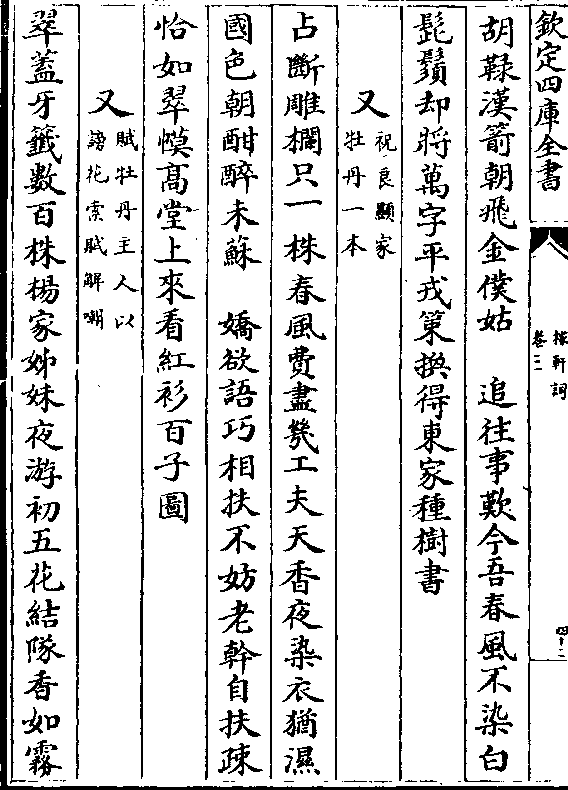 欽定四庫全書
稼軒詞
卷三
四十二
胡䩮漢箭朝飛金僕姑　追往事歎今吾春風不染白
髭鬚却將萬字平戎策換得東家種樹書
又祝良顯家
牡丹一本
占斷雕欄只一株春風費盡幾工夫天香夜染衣猶濕
國色朝酣醉未蘇　嬌欲語巧相扶不妨老幹自扶疎
恰如翠幙髙堂上來看紅衫百子圖
又賦牡丹主人以
謗花索賦解嘲
翠蓋牙籤數百株楊家姊妹夜游初五花結隊香如霧